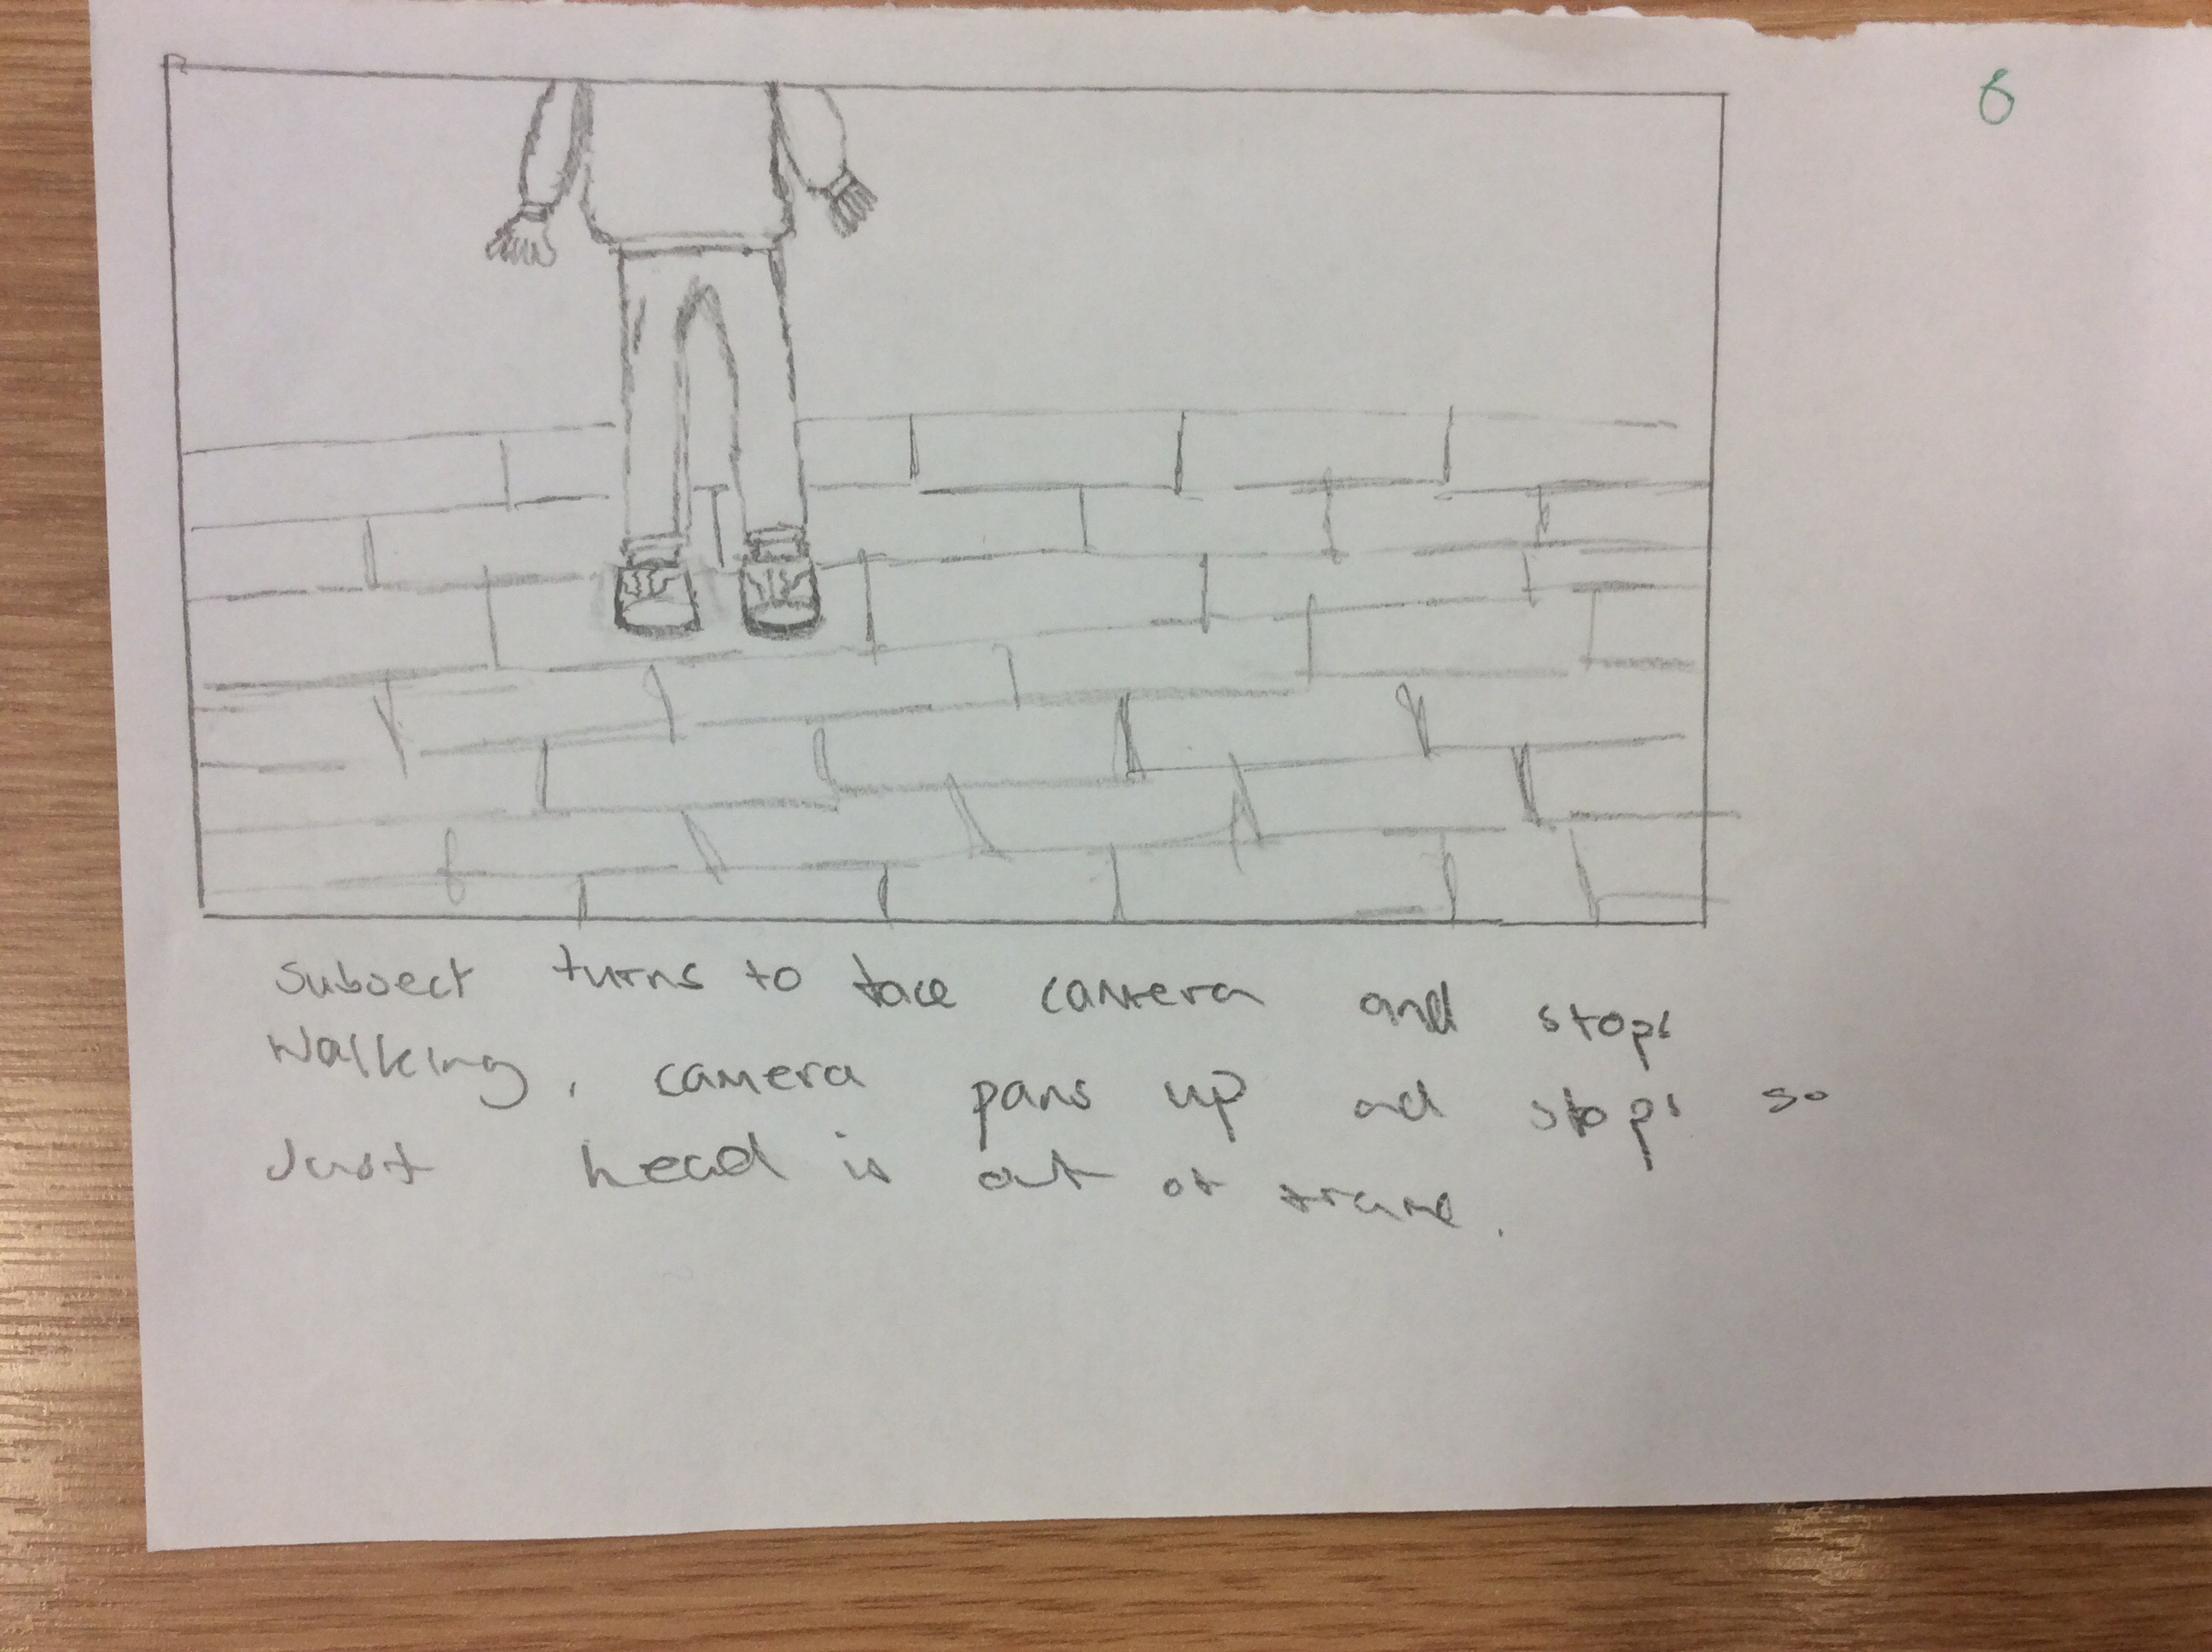 6
Subject turns to face camera and stops
Walking, camera pans up and stops so
Just head is out of frame.